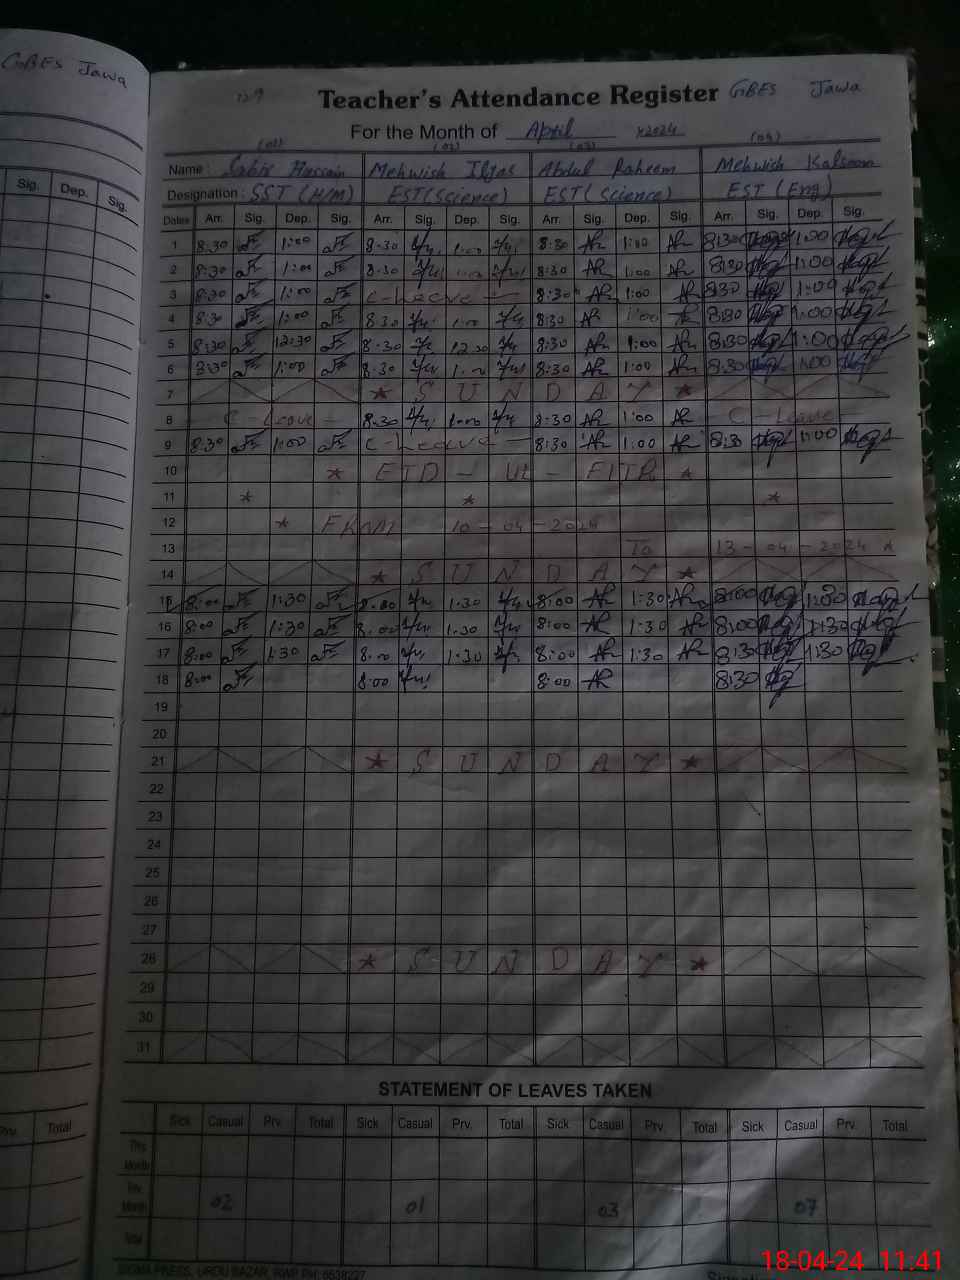 GBES Jawa
Teacher's Attendance Register GBES Jawa
For the Month of April 2024
(01) (02) (03) (04)
Name : Sabir Hussain Mehwish Ilyas Abdul Raheem Mehwish Kalsoom
Designation : SST (H/M) EST (Science) EST (Science) EST (Eng)
Sig. Dep. Sig.
Dates Arr. Sig. Dep. Sig. Arr. Sig. Dep. Sig. Arr. Sig. Dep. Sig. Arr. Sig. Dep. Sig.
1 8:30 1:00 8:30 1:00 8:30 1:00 8:30 1:00
2 8:30 1:00 8:30 1:00 8:30 1:00 8:30 1:00
3 8:30 1:00 C-Leave 8:30 1:00 8:30 1:00
4 8:30 1:00 8:30 1:00 8:30 1:00 8:30 1:00
5 8:30 12:30 8:30 12:30 8:30 1:00 8:30 1:00
6 8:30 1:00 8:30 1:00 8:30 1:00 8:30 1:00
7 * S U N D A Y *
8 C-Leave 8:30 1:00 8:30 1:00 C-Leave
9 8:30 1:00 C-Leave 8:30 1:00 8:30 1:00
10 * EID - UL - FITR *
11 * * *
12 * FROM 10-04-2024
13 To 13-04-2024 *
14 * S U N D A Y *
15 8:00 1:30 8:00 1:30 8:00 1:30 8:00 1:30
16 8:00 1:30 8:00 1:30 8:00 1:30 8:00 1:30
17 8:00 1:30 8:00 1:30 8:00 1:30 8:30 1:30
18 8:00 8:00 8:00 8:30
19
20
21 * S U N D A Y *
22
23
24
25
26
27
28 * S U N D A Y *
29
30
31
STATEMENT OF LEAVES TAKEN
Prv. Total
Sick Casual Prv. Total Sick Casual Prv. Total Sick Casual Prv. Total Sick Casual Prv. Total
This Month
Prv. Month 02 01 03 07
Total
PRESS, URDU BAZAR, RWP PH: 5538227
18-04-24 11:41